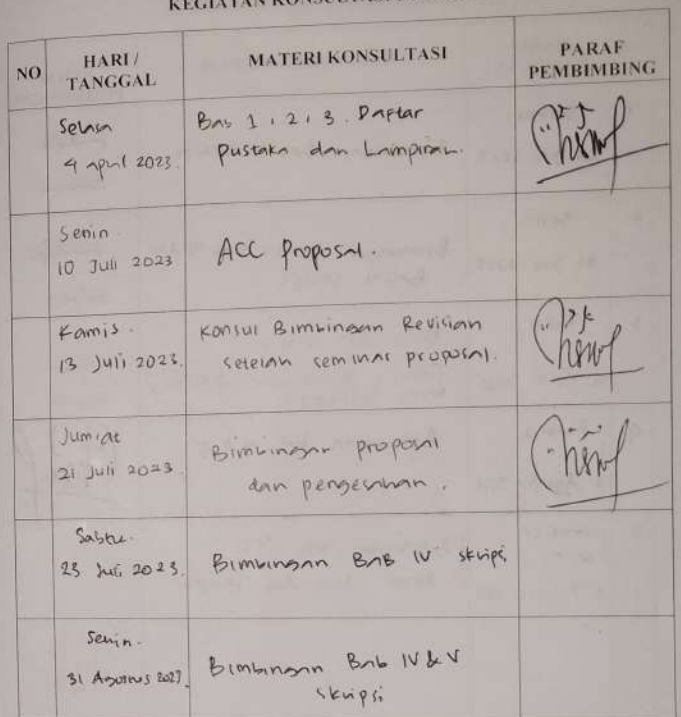 KEGIATAN KONSULTASI
NO
HARI /
TANGGAL
MATERI KONSULTASI
PARAF
PEMBIMBING
Selasa
4 april 2023.
Bab 1, 2, 3. Daftar
Pustaka dan Lampiran.
Senin
10 Juli 2023
ACC Proposal.
Kamis.
13 Juli 2023.
Konsul Bimbingan Revisian
setelah seminar proposal.
Jumiat
21 Juli 2023
Bimbingan proposal
dan pengesahan.
Sabtu.
23 Juli 2023.
Bimbingan BAB IV skripsi
Senin.
31 Agustus 2023.
Bimbingan Bab IV & V
skripsi